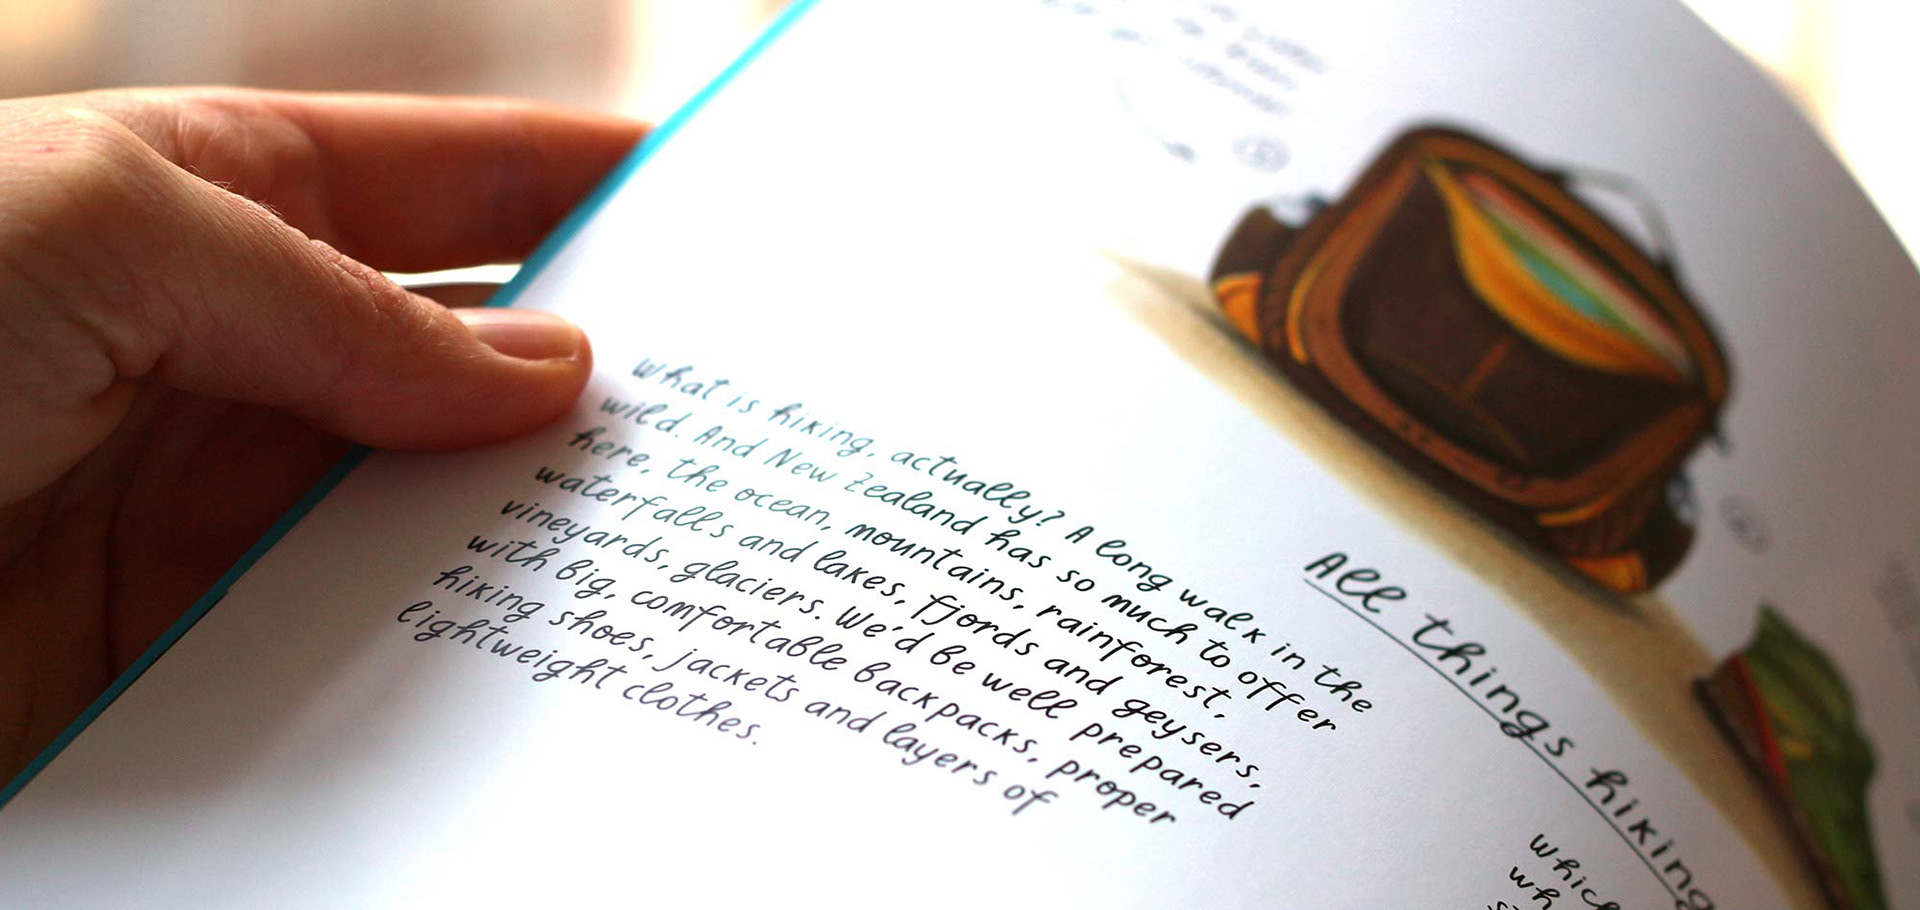 What is hiking, actually? A long walk in the
wild. And New Zealand has so much to offer
here, the ocean, mountains, rainforest,
waterfalls and lakes, fjords and geysers,
vineyards, glaciers. We'd be well prepared
with big, comfortable backpacks, proper
hiking shoes, jackets and layers of
lightweight clothes.
All things hiking
which